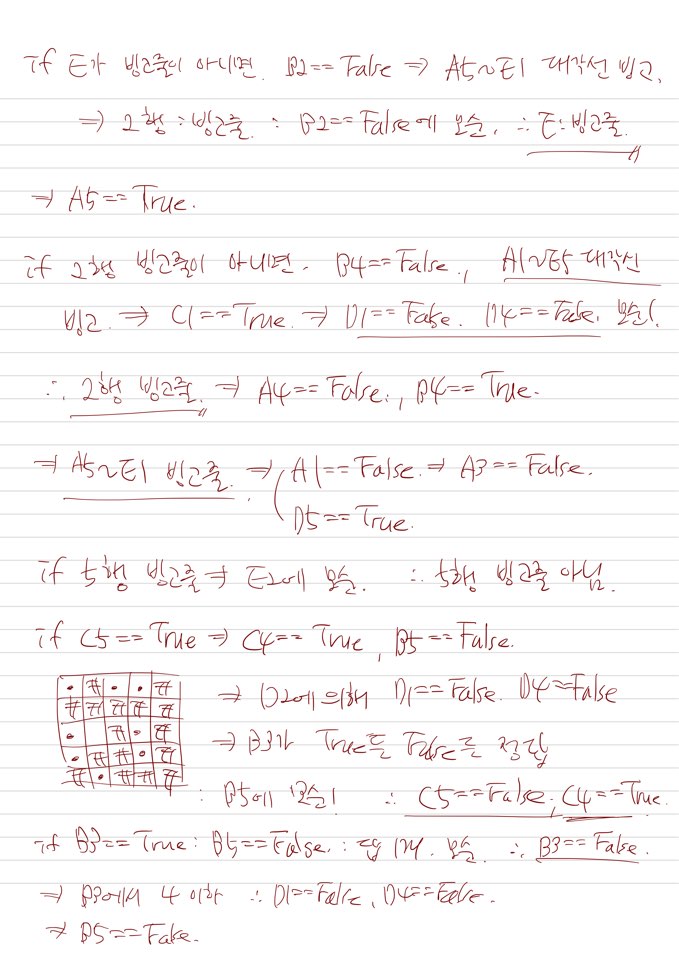 if E가 빙고줄이 아니면. B2==False ⇒ A5~E1 대각선 빙고.
⇒ 2행 : 빙고줄. : B2==False에 모순. ∴ E: 빙고줄.
⇒ A5==True.
if 2행 빙고줄이 아니면. B4==False., A1~E5 대각선
빙고. ⇒ C1==True. ⇒ D1==False. D4==False. 모순!.
∴ 2행 빙고줄. ⇒ A4==False., B4==True.
⇒ A5~E1 빙고줄. ⇒ A1==False. ⇒ A3==False.
D5==True.
if 5행 빙고줄 ⇒ E2에 모순. ∴ 5행 빙고줄 아님.
if C5==True ⇒ C4==True, B5==False.
⇒ D2에 의해 D1==False. D4=False
⇒ B3가 True든 False든 정답
: B5에 모순! ∴ C5==False, C4==True.
if B3==True : B5==False. : 답 1개. 모순. ∴ B3==False.
⇒ B3에서 4 이하 ∴ D1==False, D4==False.
⇒ B5==False.